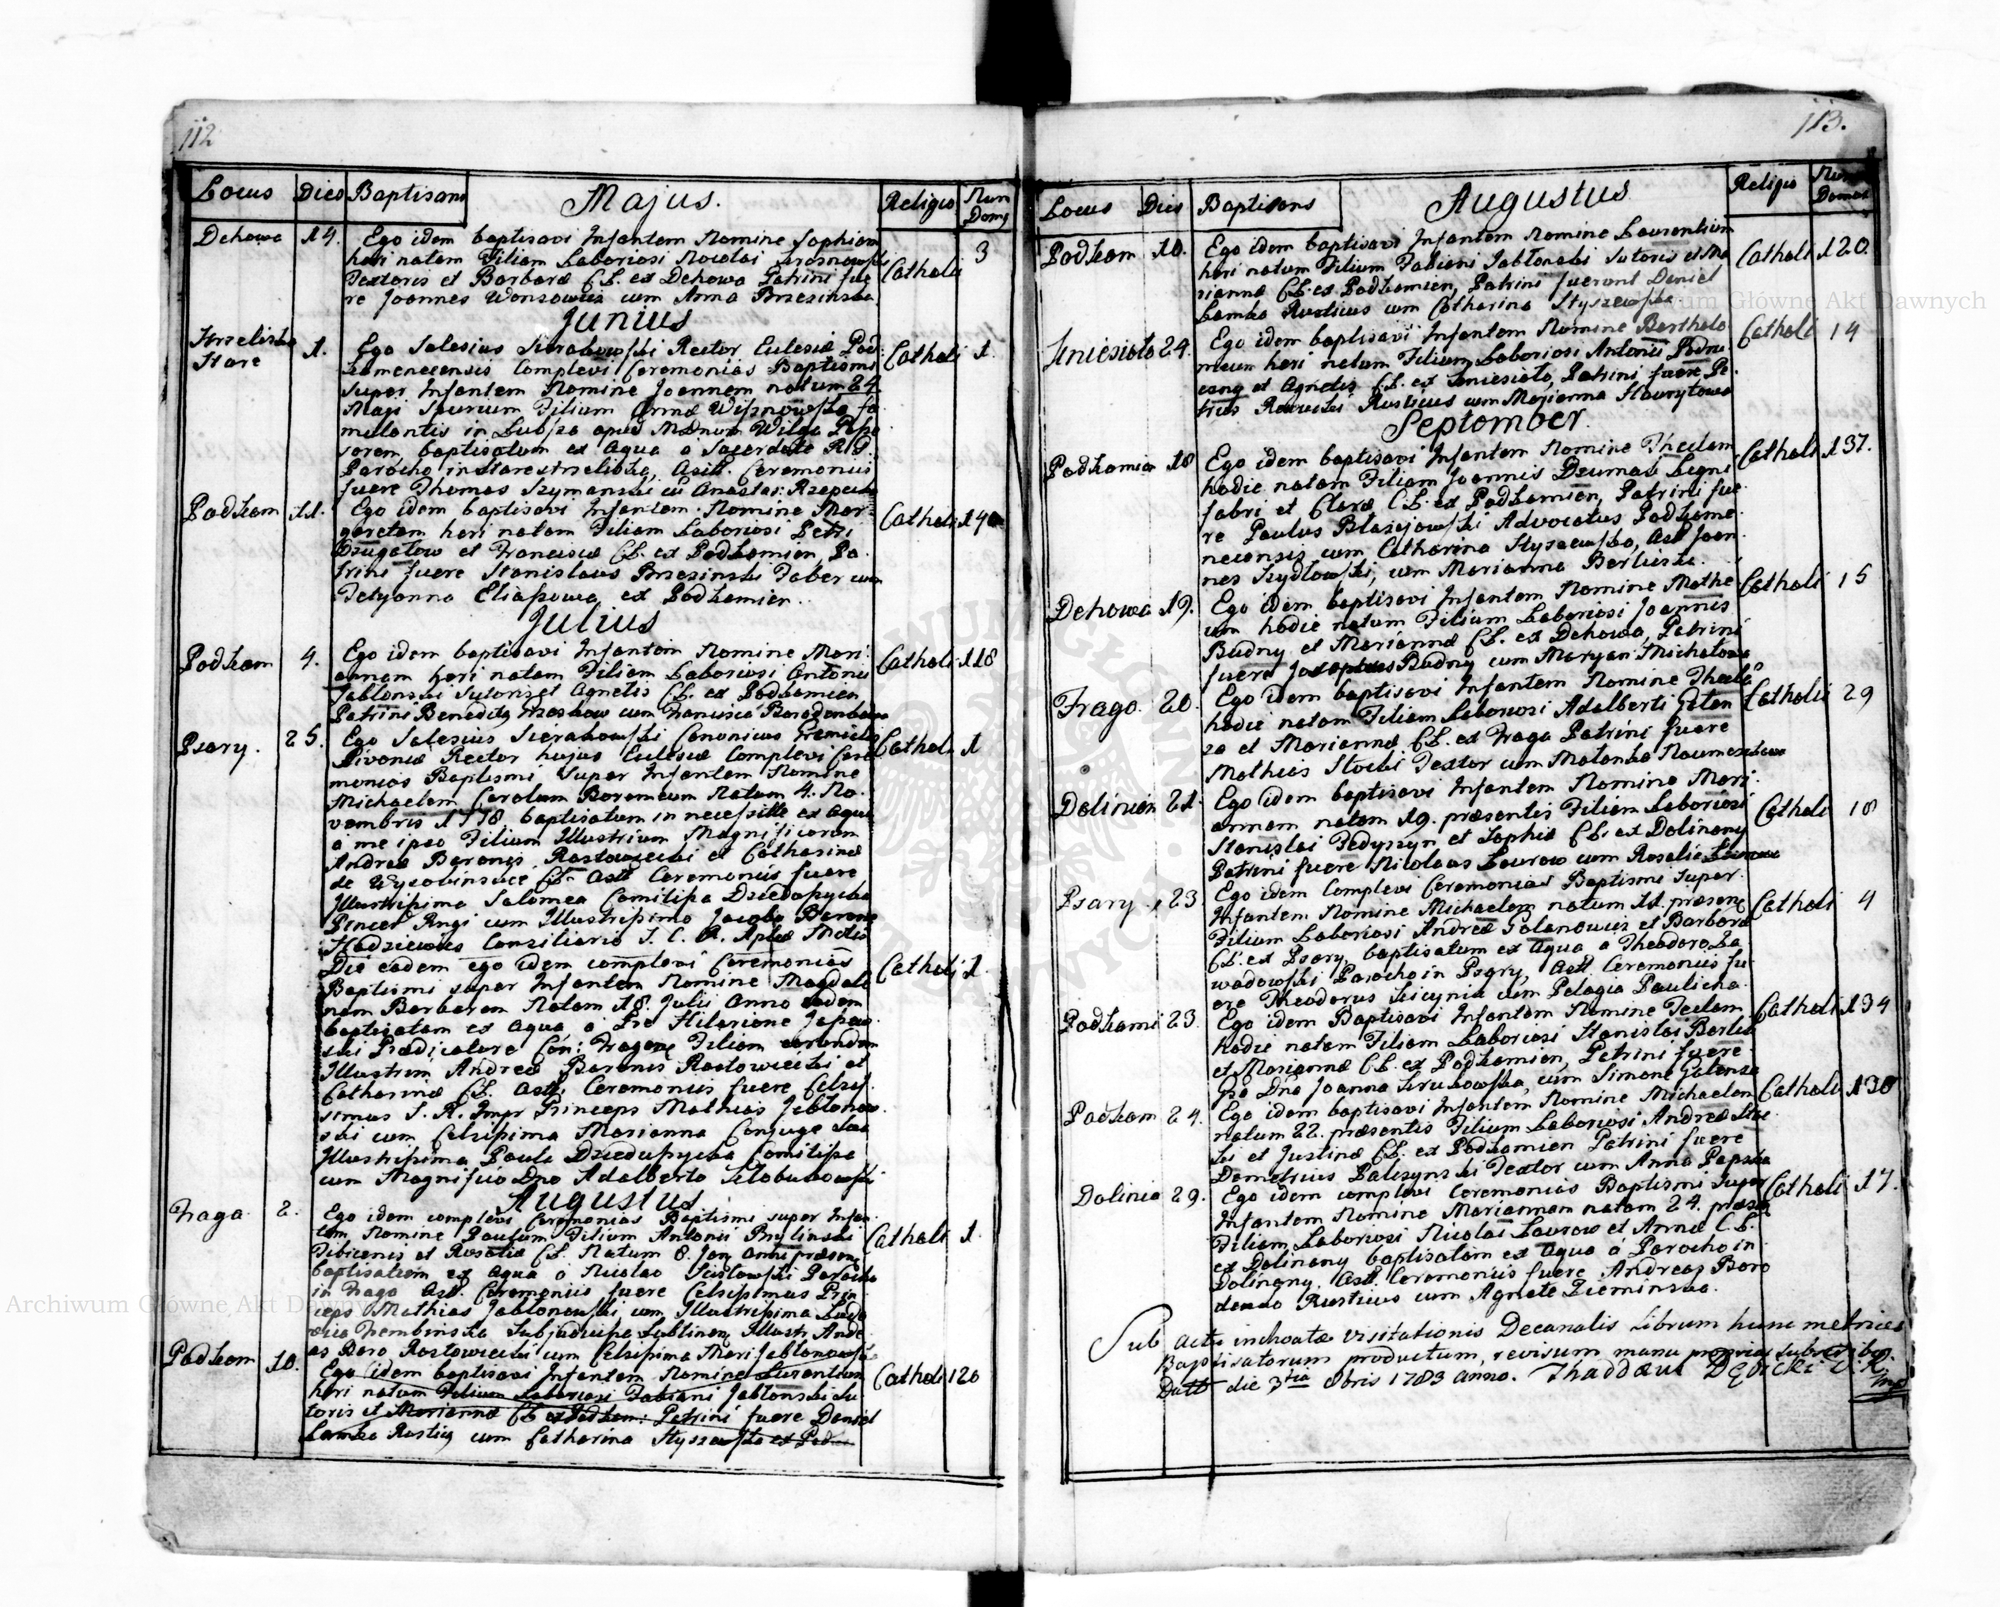 112
Locus Dies Baptisans Majus. Religio Num Domg
Dehowa 14. Ego idem baptisavi Infantem Nomine Sophiam
heri natam Filiam Laboriosi Nicolai
Textoris et Barbarae CL. ex Dehowa Patrini fue
re Joannes cum Anna Brzezinska
Catholi 3
Junius
Strzeliska Stare 1. Ego Salesius Sierakowski Rector Eclesiae Pod
kamenecensis Complevi Ceremonias Baptismi
super Infantem Nomine Joannem natum 24
Maji Spurium Filium Annae Wisznowska fa
mulantis in Lubsza apud
sorem, baptisatum ex Aqua a Sacerdote R.D.
Parocho in Stare Strzeliska, Astt. Ceremoniis
fuere Thomas Szymanski cu Anastas:
Catholi 1.
Podkam 11. Ego idem baptisavi Infantem Nomine Mar
garetam heri natam Filiam Laboriosi Petri
et Francisca CL. ex Podkamien, Pa
trini fuere Stanislaus Brzezinski Faber cum
Tetyanna Eliaszowa ex Podkamien.
Catholi 140
Julius
Podkam 4. Ego idem baptisavi Infantem Nomine Mari
annam heri natam Filiam Laboriosi Antonii
Jablonski Sutoris et Agnetis CL. ex Podkamien
Patrini Benedictg cum Francisca
Catholi 118
Psary. 25. Ego Salesius Sierakowski Canonicus
Livoniae Rector hujus Eclesiae Complevi Cere
monias Baptismi, super Infantem Nomine
Michaelem Carolum Boromeum Natum 4. No
vembris 1778 baptisatum in necessitte ex Aqua
a me ipso Filium Illustrium Magnificorum
Andreae Baronis Rostowiecki et Catharinae
de CL. Astt. Ceremoniis fuere
Illustrissima Salomea Comitissa Dzieduszycka
cum Illustrissimo Jacobo Barone
Consiliario S. C. R. Aplae Mttis
Catholi 1
Die eadem ego idem complevi Ceremonias
Baptismi super Infantem Nomine Magdale
nam Barbaram Natam 18. Julii Anno eodem
baptisatam ex Aqua a Hilarione
ski Praedicatore Con: Filiam eorundem
Illustrium Andreae Baronis Rostowiecki et
Catharinae CL. Astt. Ceremoniis fuere Celsis
simus S. R. Impr Princeps Mathias Jablonow
ski cum Celsissima Marianna Conjuge sua
Illustrissima Paula Dzieduszycka Comitissa
cum Magnifico Dno Adalberto
Catholi 1.
Augustus
Fraga 2. Ego idem complevi Ceremonias Baptismi super Infan
tem Nomine Paulum Filium Antonii
Tibicenis et Rosaliae CL. Natum 8. Jan anni praesen
baptisatum ex Aqua a Nicolao Parocho
in Fraga Astt. Ceremoniis fuere Celsissimus Prin
ceps Mathias Jablonowski cum Illustrissima
Illustr Andre
as Baro Rostowiecki cum Celsissima Mari Jablonowska
Catholi 1.
Podkam 10. Ego idem baptisavi Infantem Nomine Laurentium
heri natum Filium Laboriosi Fabiani Jablonski Su
toris et Mariannae CL ex Podkam: Patrini fuere Daniel
Lamka Rusticg cum Catharina Styszewska ex Podkam
Catholi 120
113.
Locus Dies Baptisans Augustus Religio Num Domus
Podkam 10. Ego idem baptisavi Infantem Nomine Laurentium
heri natum Filium Fabiani Jablonski Sutoris et Ma
riannae CL. ex Podkamien, Patrini fuerunt Daniel
Lamka Rusticus cum Catharina Styszewska
Catholi 120.
Uniesioto 24. Ego idem baptisavi Infantem Nomine Bartholo
meum heri natum Filium Laboriosi Antonii
et Agnetis CL. ex Uniesioto, Patrini fuere Pe
trus Rusticus cum Marianna
Catholi 14
September.
Podkamien 18 Ego idem baptisavi Infantem Nomine Theclam
hodie natam Filiam Joannis Legni
fabri et Clarae CL. ex Podkamien, Patrini fue
re Paulus Blazejowski Advocatus Podkame
necensis cum Catharina Styszewska, Ast Joan
nes Szydlowski, cum Marianna
Catholi 137.
Dehowa 19. Ego idem baptisavi Infantem Nomine Mathe
um hodie natum Filium Laboriosi Joannis
Budny et Mariannae CL. ex Dehowa, Patrini
fuere Josephus Budny cum Maryan
Catholi 15
Fraga. 20. Ego idem baptisavi Infantem Nomine Thecla
hodie natam Filiam Laboriosi Adalberti
et Mariannae CL. ex Fraga Patrini fuere
Mathias Textor cum
Catholi 29
Dolinian 21. Ego idem baptisavi Infantem Nomine Mari
annam natam 19. praesentis Filiam Laboriosi
Stanislai et Sophiae CL. ex Doliniany
Patrini fuere Nicolaus Laurow cum Rosalia
Catholi 18
Psary 23 Ego idem Complevi Ceremonias Baptismi super
Infantem Nomine Michaelem natum 11. praesen
Filium Laboriosi Andreae et Barbarae
CL. ex Psary, baptisatum ex Aqua a Theodoro Za
wadowski Parocho in Psary, Astt. Ceremoniis fu
ere Theodorus cum Pelagia
Catholi 4
Podkami 23. Ego idem Baptisavi Infantem Nomine Teclam
hodie natam Filiam Laboriosi Stanislai
et Mariannae CL. ex Podkamien, Patrini fuere
Dna Joanna cum Simone
Catholi 134
Podkam 24. Ego idem baptisavi Infantem Nomine Michaelem
natum 22. praesentis Filium Laboriosi Andreae
et Justinae CL. ex Podkamien Patrini fuere
Demetrius Textor cum Anna
Catholi 138
Dolinia 29. Ego idem complevi Ceremonias Baptismi super
Infantem Nomine Mariannam natam 24. praesen
Filiam Laboriosi Nicolai Laurow et Annae C.L.
ex Doliniany baptisatam ex Aqua a Parocho in
Doliniany. Astt. Ceremoniis fuere Andreas Boro
Rusticus cum Agnete
Catholi 17.
Sub actu inchoatae visitationis Decanalis Librum hunc metrices
Baptisatorum productum, revisum manu propria subscribo.
Datt die 3tia 8bris 1783 anno. Thaddaeus
Archiwum Główne Akt Dawnych
Archiwum Główne Akt Dawnych